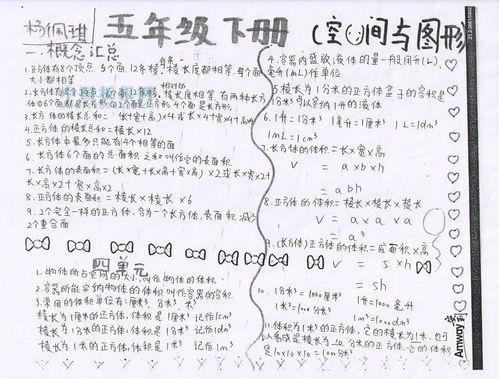 杨佩琪 五年级下册 (空间与图形
一.概念汇总
1.正方体有8个顶点,6个面,12条棱,棱长度都相等,每个面
大小都相等
体有6个面都是长方形
3.长方体的棱长总和=(长+宽+高)×4或长×4+宽×4+高×4
4.正方体的棱长总和=棱长×12
5.长方体中最多只能有4个相等的面
6.长方体6个面的总面积之和叫作它的表面积
7.长方体的表面积=(长×宽+长×高+宽×高)×2或长×宽×2+
长×高×2+宽×高×2
8.正方体的表面积=棱长×棱长×6
9.2个完全一样的正方体,合为一个长方体,表面积减少
2个重合面
四单元
1.物体所占空间的大小叫作物体的体积
2.容器所能容纳物体的体积叫作容器的容积
3.常用的体积单位有:厘米³、分米³、米³
棱长为1厘米的正方体,体积是1厘米³ 记作1cm³
棱长为1分米的正方体,体积是1分米³ 记作1dm³
棱长为1米的正方体,体积是1米³ 记作1m³
4.容器内盛放液体的量一般用升(L)、
毫升(mL)作单位
5.棱长为1分米的正方体盒子的容积是
1分米³可以容纳1升的液体
6.1升=1分米³ 1毫升=1厘米³ 1L=1dm³
1mL=1cm³
7.长方体的体积=长×宽×高
V = a×b×h
= abh
8.正方体的体积=棱长×棱长×棱长
V = a×a×a
= a³
9.(长方体)正方体的体积=底面积×高
V = s×h
= sh
10.1分米³=1000厘米³ 1升=1000毫升
1米³=1000分米³ 1m³=1000dm³
11.体积为1米³的正方体,它的棱长为1米,也可
以看成是棱长为10分米的正方体,它的体积
是10×10×10=1000分米³
Amway